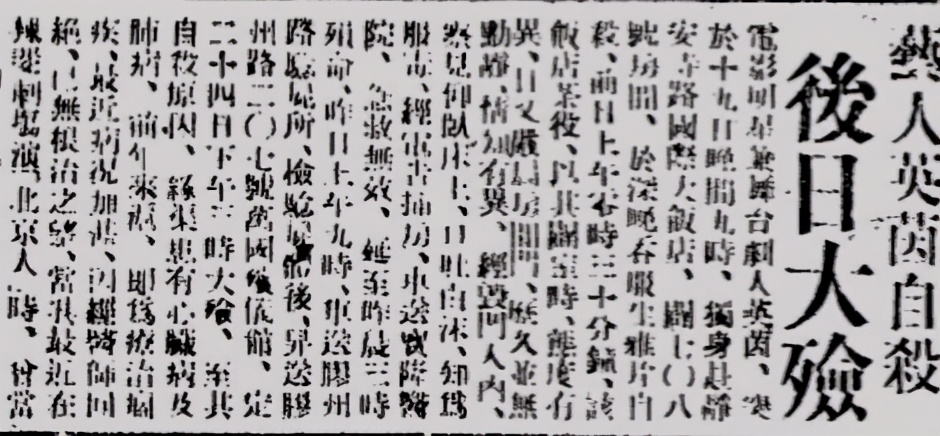 藝人英茵自殺
後日大殮
電影明星兼舞台劇人英茵、突
於十九日晚間九時、獨身赴靜
安寺路國際大飯店、闢七〇八
號房間、於深晚吞服生雅片自
殺、前日上午零時三十分鐘、該
飯店茶役、以其闢室時、態度有
異、日又嚴扃房門、歷久並無
動靜、情知有異、經毀門入內、
察見仰臥床上、口吐白沫、知爲
服毒、經電告捕房、車送寶隆醫
院、急救無效、延至昨晨三時
殞命、昨日上午九時、車送膠州
路驗屍所、檢驗屍體後、舁送膠
州路二〇七號萬國殯儀館、定
二十四日下午二時大殮、至其
自殺原因、雜患有心臟病及
肺病、前年來滬、即爲療治痼
疾、最近病況加劇、因經醫師回
絕、已無根治之望、當其最近在
辣斐劇場演「北京人」時、曾當